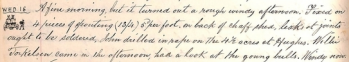 WED 18. A fine morning, but it turned out a rough windy afternoon. Fixed on
4 pieces of spouting (12/9) 5" per foot, on back of chaff shed, leaks at joints
ought to be soldered, John drilled in rape on the 4½ acres at Hughes. Willie
Torkelsen came in the afternoon, had a look at the young bulls. Windy now